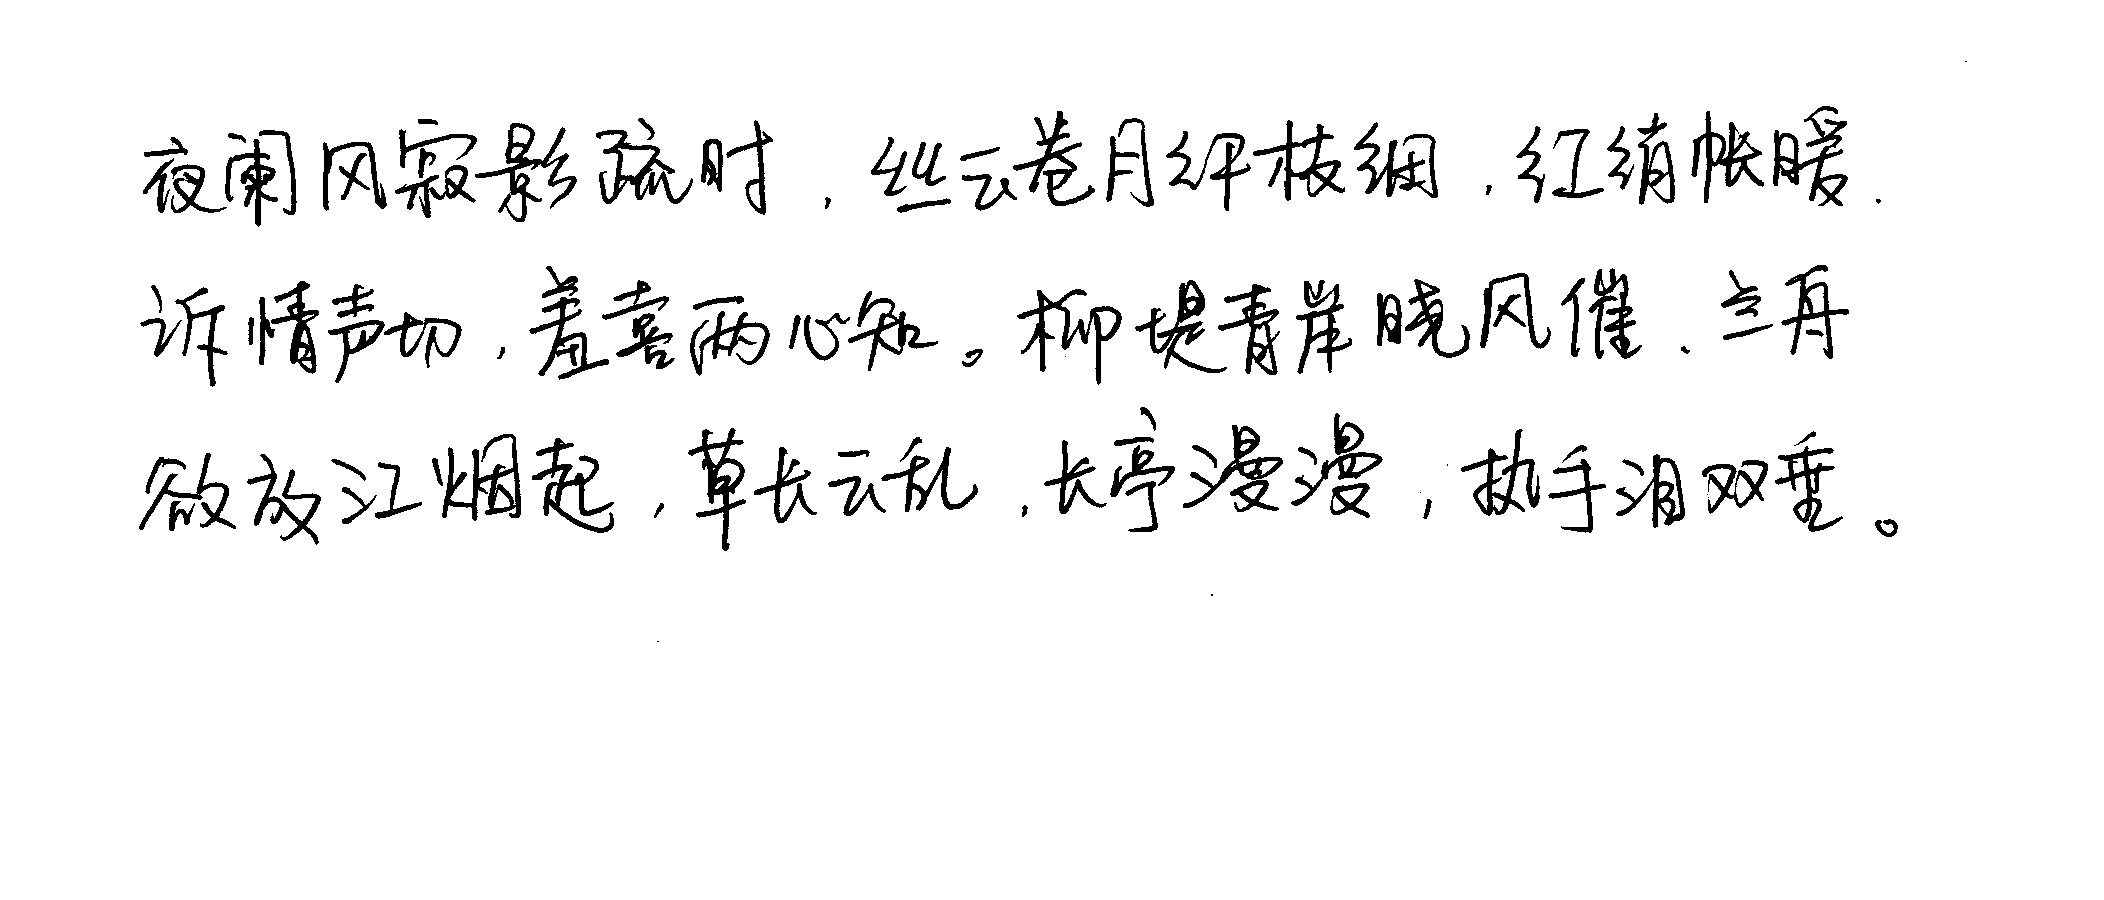 夜阑风寂影疏时，丝云卷月纤枝细，红绡帐暖，
诉情声切，羞喜两心知。柳堤青岸晓风催，兰舟
欲放江烟起，草长云乱，长亭漫漫，执手泪双垂。